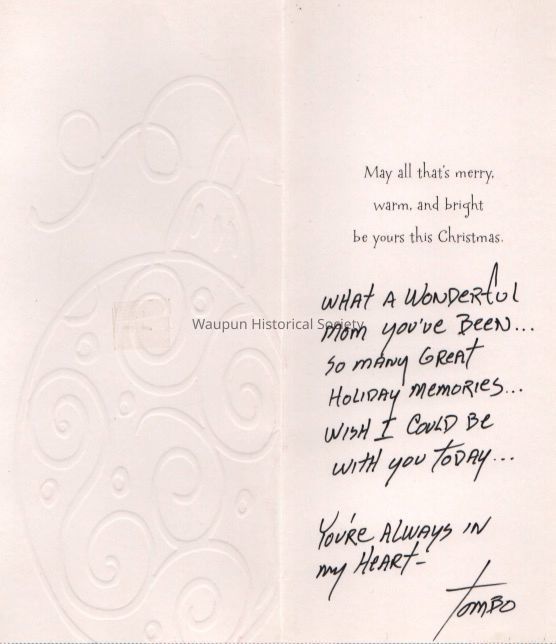 May all that's merry,
warm, and bright
be yours this Christmas.
WHAT A WONDERFUL
MOM YOU'VE BEEN...
SO MANY GREAT
HOLIDAY MEMORIES...
WISH I COULD BE
WITH YOU TODAY...
YOU'RE ALWAYS IN
MY HEART-
TOMBO
Waupun Historical Society